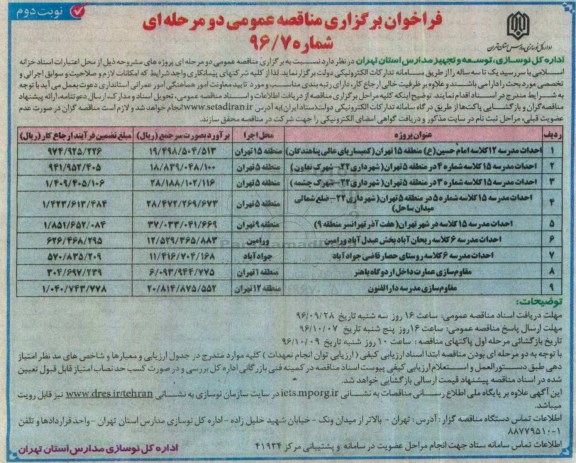 نوبت دوم
فراخوان برگزاری مناقصه عمومی دو مرحله ای
شماره ۹۶/۷
اداره کل نوسازی مدارس استان تهران
اداره کل نوسازی، توسعه و تجهیز مدارس استان تهران در نظر دارد نسبت به برگزاری مناقصه عمومی دو مرحله ای پروژه های مشروحه ذیل از محل اعتبارات اسناد خزانه
اسلامی با سررسید یک تا سه ساله را از طریق سامانه تدارکات الکترونیکی دولت برگزار نماید. لذا از کلیه شرکتهای پیمانکاری واجد شرایط که امکانات لازم و صلاحیت و سوابق اجرائی و
تخصصی مورد بحث را دارا می باشند و علاوه بر ظرفیت خالی ارجاع کار، دارای رتبه بندی متناسب و مورد تایید معاونت امور هماهنگی امور عمرانی استانداری دعوت بعمل می آید با توجه
به شرایط مندرج در اسناد اقدام نمایند. توضیح اینکه کلیه مراحل برگزاری مناقصه از دریافت اطلاعات و اسناد مناقصه عمومی، تحویل اسناد و مدارک، ارسال دعوتنامه، ارائه پیشنهاد
مناقصه گران و بازگشایی پاکت ها از طریق درگاه سامانه تدارکات الکترونیکی دولت (ستاد ایران) به آدرس www.setadiran.ir انجام خواهد شد و لازم است مناقصه گران در صورت عدم
عضویت قبلی، مراحل ثبت نام در سایت مذکور و دریافت گواهی امضای الکترونیکی را جهت شرکت در مناقصه محقق سازند.
ردیف عنوان پروژه محل اجرا برآورد بصورت سرجمع (ریال) مبلغ تضمین فرآیند ارجاع کار (ریال)
۱ احداث مدرسه ۱۲ کلاسه امام حسین (ع) منطقه ۱۵ تهران (کمیساریای عالی پناهندگان) منطقه ۱۵ تهران ۱۹/۴۹۸/۵۰۴/۵۱۳ ۹۷۴/۹۲۵/۲۲۶
۲ احداث مدرسه ۱۵ کلاسه شماره ۴ در منطقه ۵ تهران (شهرداری ۲۲-شهرک تعاون) منطقه ۵ تهران ۱۸/۸۳۹/۰۴۸/۱۰۰ ۹۴۱/۹۵۲/۴۰۵
۳ احداث مدرسه ۱۵ کلاسه شماره ۳ در منطقه ۵ تهران (شهرداری ۲۲-شهرک چشمه) منطقه ۵ تهران ۲۸/۱۸۸/۱۰۲/۱۱۶ ۱/۴۰۹/۴۰۵/۱۰۶
۴ احداث مدرسه ۱۵ کلاسه شماره ۵ در منطقه ۵ تهران (شهرداری ۲۲-ضلع شمالی
میدان ساحل) منطقه ۵ تهران ۲۸/۴۷۲/۲۶۹/۶۷۳ ۱/۴۲۳/۶۱۳/۴۸۴
۵ احداث مدرسه ۱۵ کلاسه در شهر تهران (هفت آذر تهرانسر منطقه ۹) منطقه ۹ تهران ۳۷/۰۳۳/۰۴۱/۶۶۹ ۱/۸۵۱/۶۵۲/۰۸۴
۶ احداث مدرسه ۶ کلاسه ریحان آباد بخش عبدل آباد ورامین ورامین ۱۲/۵۲۹/۳۶۵/۸۸۳ ۶۲۶/۴۶۸/۲۹۵
۷ احداث مدرسه ۶ کلاسه روستای حصار قاضی جوادآباد جوادآباد ۱۱/۴۱۶/۷۰۴/۱۶۸ ۵۷۰/۸۳۵/۲۰۹
۸ مقاوم سازی عمارت داخل اردوگاه باهنر منطقه ۱ تهران ۶/۰۹۳/۹۴۴/۷۷۵ ۳۰۴/۶۹۷/۲۳۹
۹ مقاوم سازی مدرسه دارالفنون منطقه ۱۲ تهران ۲۰/۸۱۴/۸۷۵/۵۵۲ ۱/۰۴۰/۷۴۳/۷۷۸
توضیحات:
مهلت دریافت اسناد مناقصه عمومی: ساعت ۱۶ روز سه شنبه تاریخ ۹۶/۰۹/۲۸
مهلت ارسال پاسخ مناقصه عمومی: ساعت ۱۶ روز پنج شنبه تاریخ ۹۶/۱۰/۰۷
تاریخ بازگشائی مرحله اول پاکتهای مناقصه: ساعت ۱۰ روز شنبه تاریخ ۹۶/۱۰/۰۹
با توجه به دو مرحله ای بودن مناقصه ابتدا اسناد ارزیابی کیفی (ارزیابی توان انجام تعهدات) کلیه موارد مندرج در جدول ارزیابی و معیارها و شاخص های مد نظر امتیاز
دهی طبق دستورالعمل و استعلام ارزیابی کیفی پیوست اسناد مناقصه در کمیته فنی بازرگانی اداره کل بررسی و در صورت کسب حد نصاب امتیاز قابل قبول تعیین
شده در اسناد مناقصه پیشنهاد قیمت ارسالی بازگشایی خواهد شد.
این آگهی علاوه بر پایگاه ملی اطلاع رسانی مناقصات به نشانی iets.mporg.ir در سایت سازمان نوسازی به نشانی www.dres.ir/tehran نیز قابل رویت
میباشد.
اطلاعات تماس دستگاه مناقصه گزار: آدرس: تهران - بالاتر از میدان ونک - خیابان شهید خلیل زاده - اداره کل نوسازی مدارس استان تهران - واحد قراردادها و تلفن
۸۸۷۷۹۵۱۰۰۱
اطلاعات تماس سامانه ستاد جهت انجام مراحل عضویت در سامانه و پشتیبانی مرکز ۴۱۹۳۴
اداره کل نوسازی مدارس استان تهران